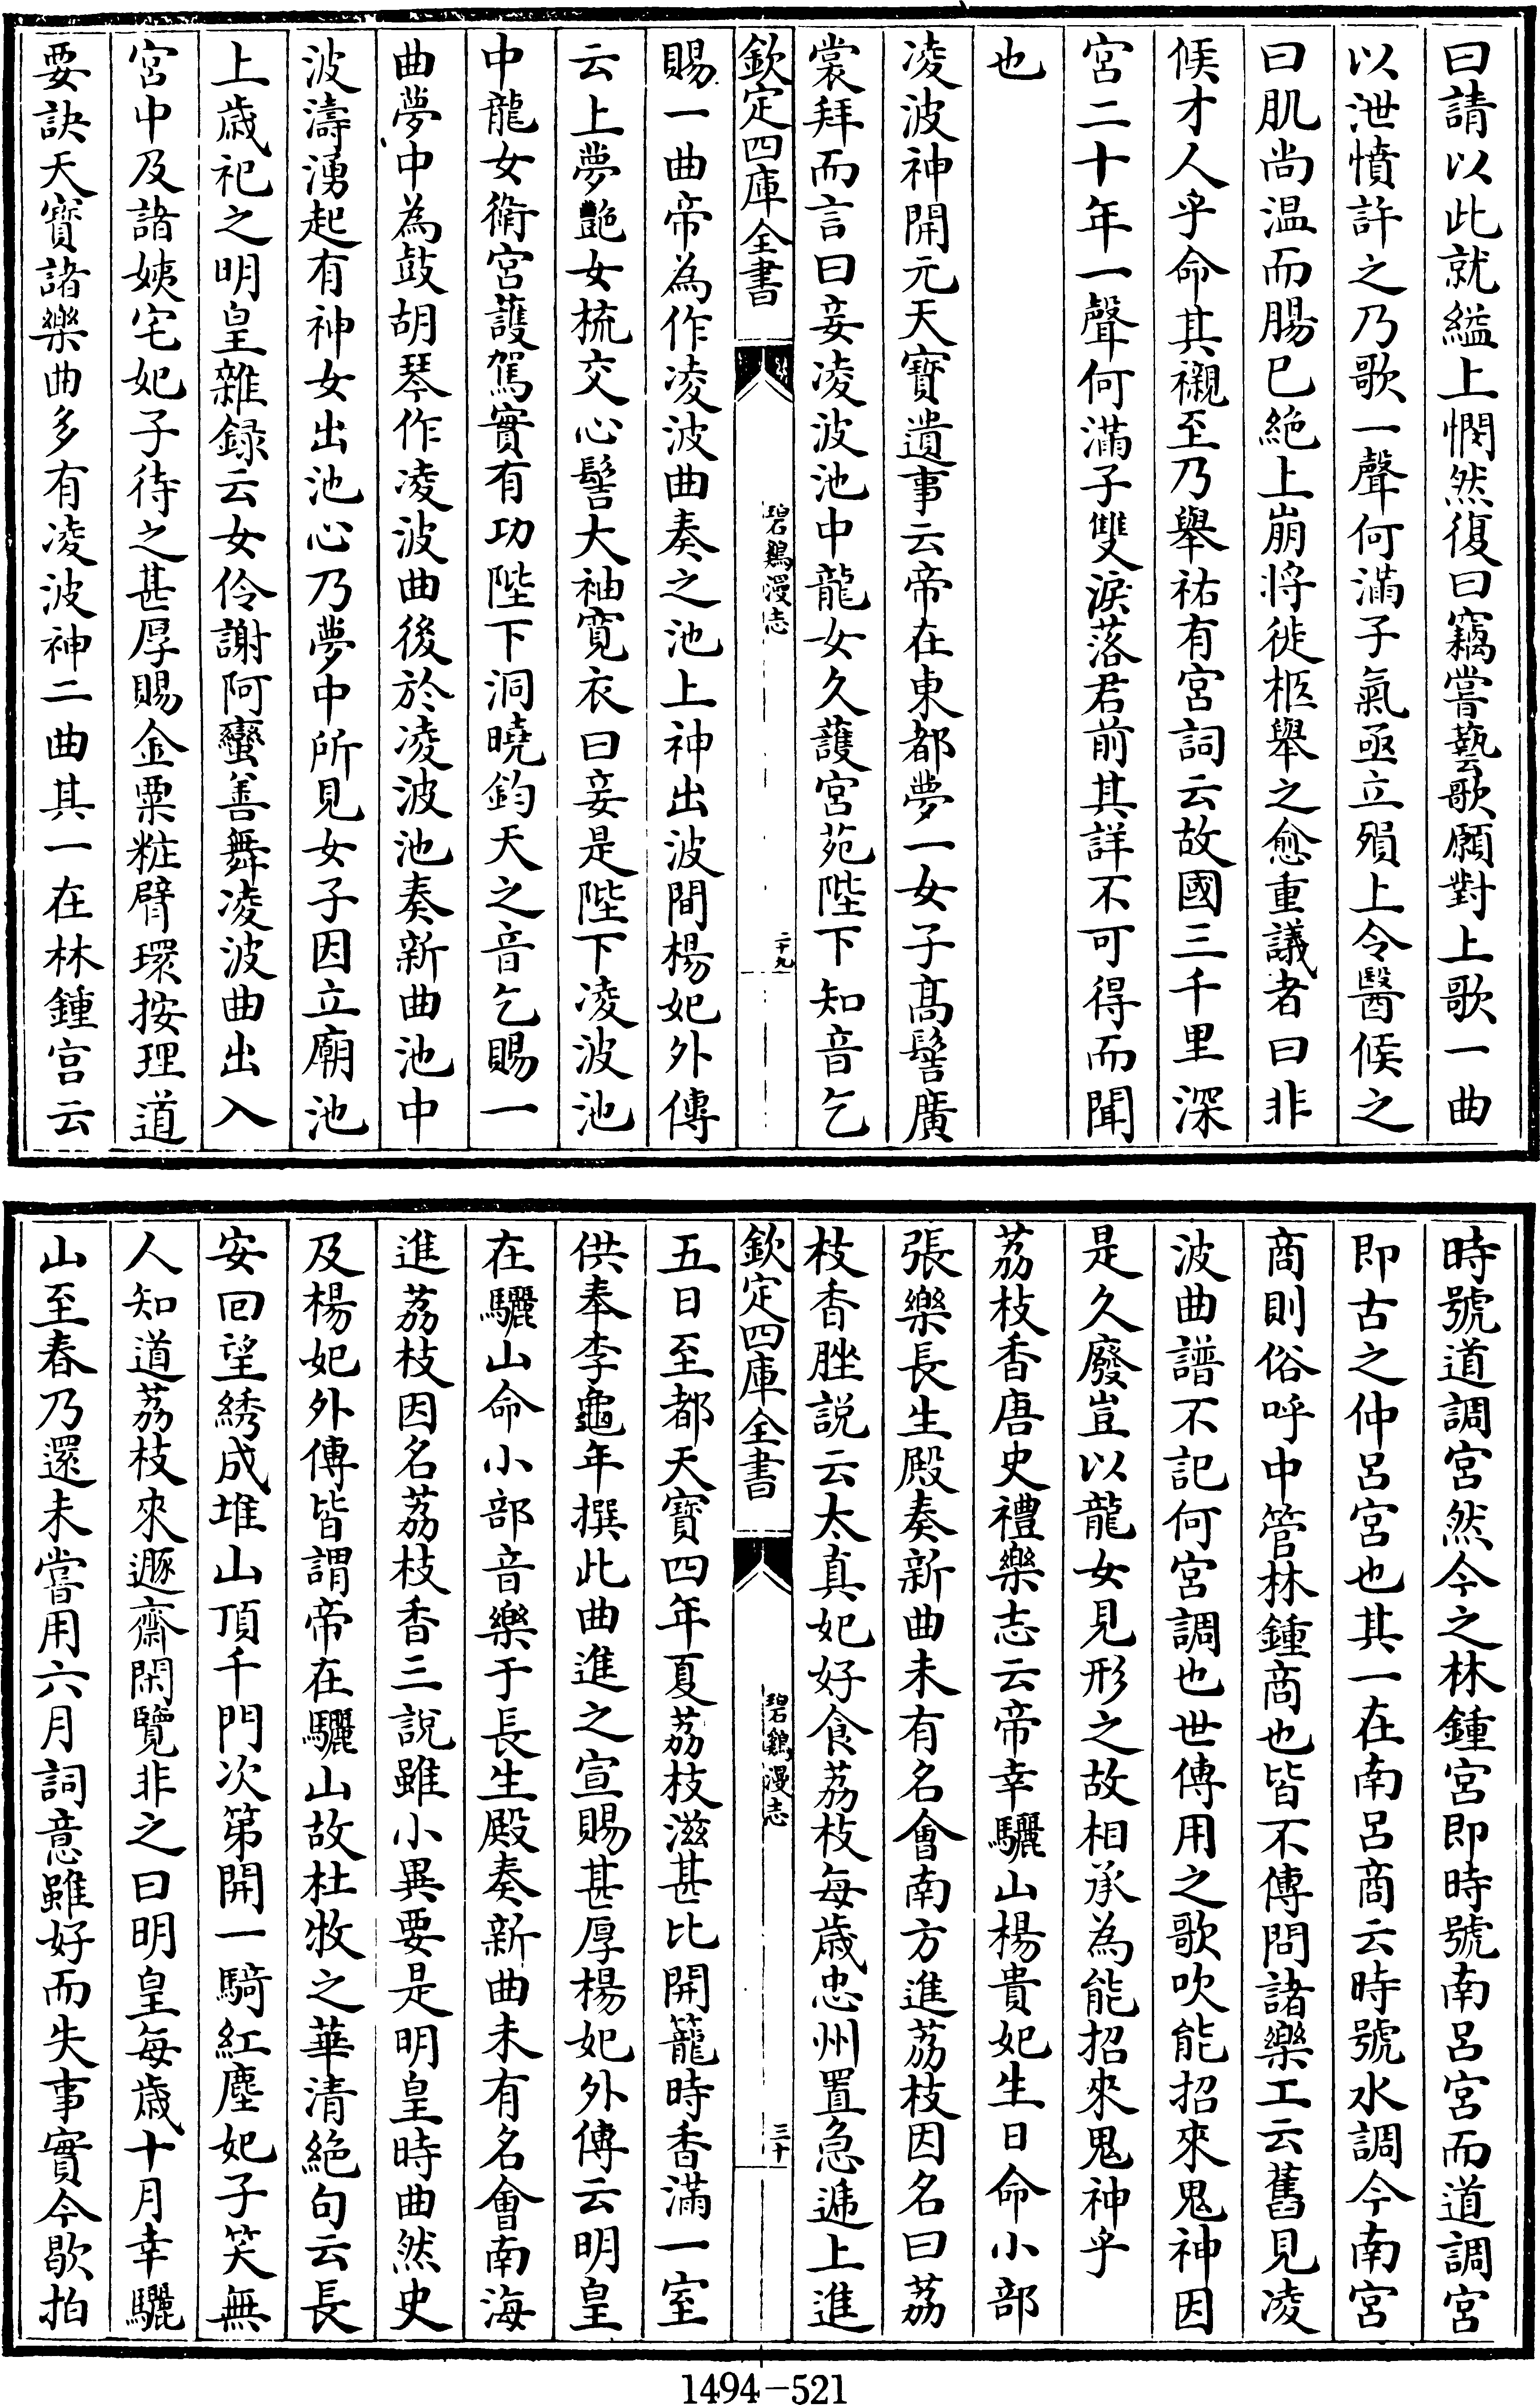 曰請以此就縊上憫然復曰竊嘗藝歌願對上歌一曲
以泄憤許之乃歌一聲何滿子氣亟立殞上令醫候之
曰肌尚温而腸已絶上崩將徙柩舉之愈重議者曰非
候才人乎命其襯至乃舉祐有宮詞云故國三千里深
宮二十年一聲何滿子雙淚落君前其詳不可得而聞
也
凌波神開元天寳遺事云帝在東都夢一女子髙髻廣
裳拜而言曰妾凌波池中龍女久䕶宮苑陛下知音乞
欽定四庫全書
碧鷄漫志
二十九
賜一曲帝為作凌波曲奏之池上神出波間楊妃外傳
云上夢艶女梳交心髻大袖寛衣曰妾是陛下凌波池
中龍女衛宮䕶駕實有功陛下洞曉鈞天之音乞賜一
曲夢中為鼓胡琴作凌波曲後於凌波池奏新曲池中
波濤湧起有神女出池心乃夢中所見女子因立廟池
上歳祀之明皇雜録云女伶謝阿蠻善舞凌波曲出入
宮中及諸姨宅妃子待之甚厚賜金粟粧臂環按理道
要訣天寳諸樂曲多有凌波神二曲其一在林鍾宮云
時號道調宮然今之林鍾宮即時號南呂宮而道調宮
即古之仲呂宮也其一在南呂商云時號水調今南宮
商則俗呼中管林鍾商也皆不傳問諸樂工云舊見凌
波曲譜不記何宮調也世傳用之歌吹能招來鬼神因
是久廢豈以龍女見形之故相承為能招來鬼神乎
荔枝香唐史禮樂志云帝幸驪山楊貴妃生日命小部
張樂長生殿奏新曲未有名會南方進荔枝因名曰荔
枝香脞説云太真妃好食荔枝每歳忠州置急遞上進
欽定四庫全書
碧鷄漫志
三十
五日至都天寳四年夏荔枝滋甚比開籠時香滿一室
供奉李龜年撰此曲進之宣賜甚厚楊妃外傳云明皇
在驪山命小部音樂于長生殿奏新曲未有名會南海
進荔枝因名荔枝香三説雖小異要是明皇時曲然史
及楊妃外傳皆謂帝在驪山故杜牧之華清絶句云長
安回望綉成堆山頂千門次第開一騎紅塵妃子笑無
人知道荔枝來遯齋閑覽非之曰明皇每歳十月幸驪
山至春乃還未嘗用六月詞意雖好而失事實今歇拍
1494-521